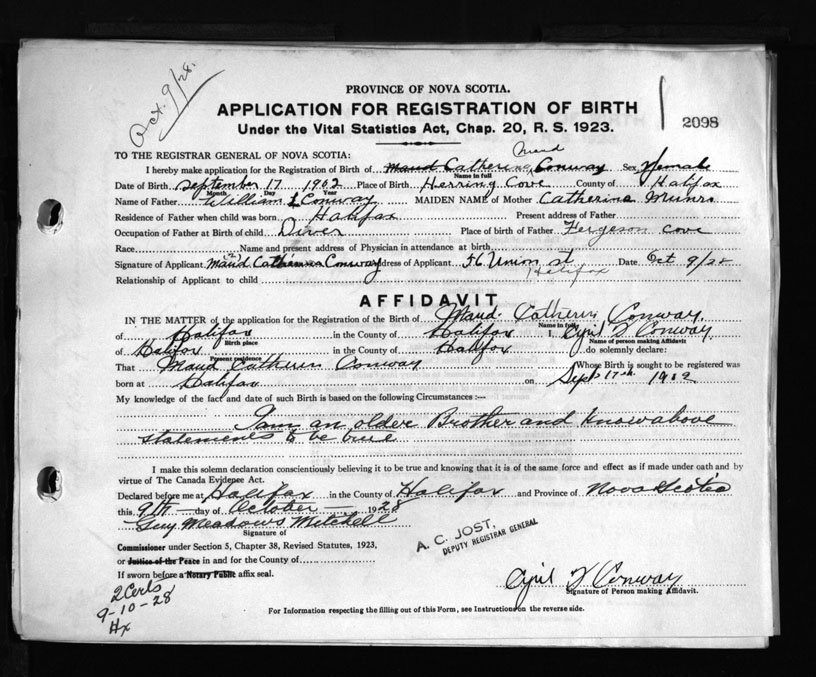 Oct. 9/28.
PROVINCE OF NOVA SCOTIA.
APPLICATION FOR REGISTRATION OF BIRTH
Under the Vital Statistics Act, Chap. 20, R. S. 1923.
2098
TO THE REGISTRAR GENERAL OF NOVA SCOTIA:
I hereby make application for the Registration of Birth of Maud Catherine Conway Sex Female
Name in full
Date of Birth September 17 1902 Place of Birth Herring Cove County of Halifax
Month Day Year
Name of Father William Conway MAIDEN NAME of Mother Catherine Munro
Residence of Father when child was born Halifax Present address of Father
Occupation of Father at Birth of child Diver Place of birth of Father Ferguson Cove
Race Name and present address of Physician in attendance at birth
Signature of Applicant Maud Catherine Conway Address of Applicant 56 Union st Date Oct 9/28
Halifax
Relationship of Applicant to child
AFFIDAVIT
IN THE MATTER of the application for the Registration of the Birth of Maud Catherin Conway.
Name in full
of Halifax in the County of Halifax I, Cyril Conway
Birth place Name of person making Affidavit
of Halifax in the County of Halifax do solemnly declare:
Present residence
That Maud Catherin Conway Whose Birth is sought to be registered was
born at Halifax on Sept 17th 1912
My knowledge of the fact and date of such Birth is based on the following Circumstances :—
I am an older Brother and know above
statements to be true
I make this solemn declaration conscientiously believing it to be true and knowing that it is of the same force and effect as if made under oath and by
virtue of The Canada Evidence Act.
Declared before me at Halifax in the County of Halifax and Province of Nova Scotia
this 9th day of October 1928
Guy Meadows Mitchell
Signature of
Commissioner under Section 5, Chapter 38, Revised Statutes, 1923,
or Justice of the Peace in and for the County of
If sworn before a Notary Public affix seal.
A. C. JOST,
DEPUTY REGISTRAR GENERAL
Cyril Conway
Signature of Person making Affidavit.
2 Certs
9-10-28
Hx
For Information respecting the filling out of this Form, see Instructions on the reverse side.